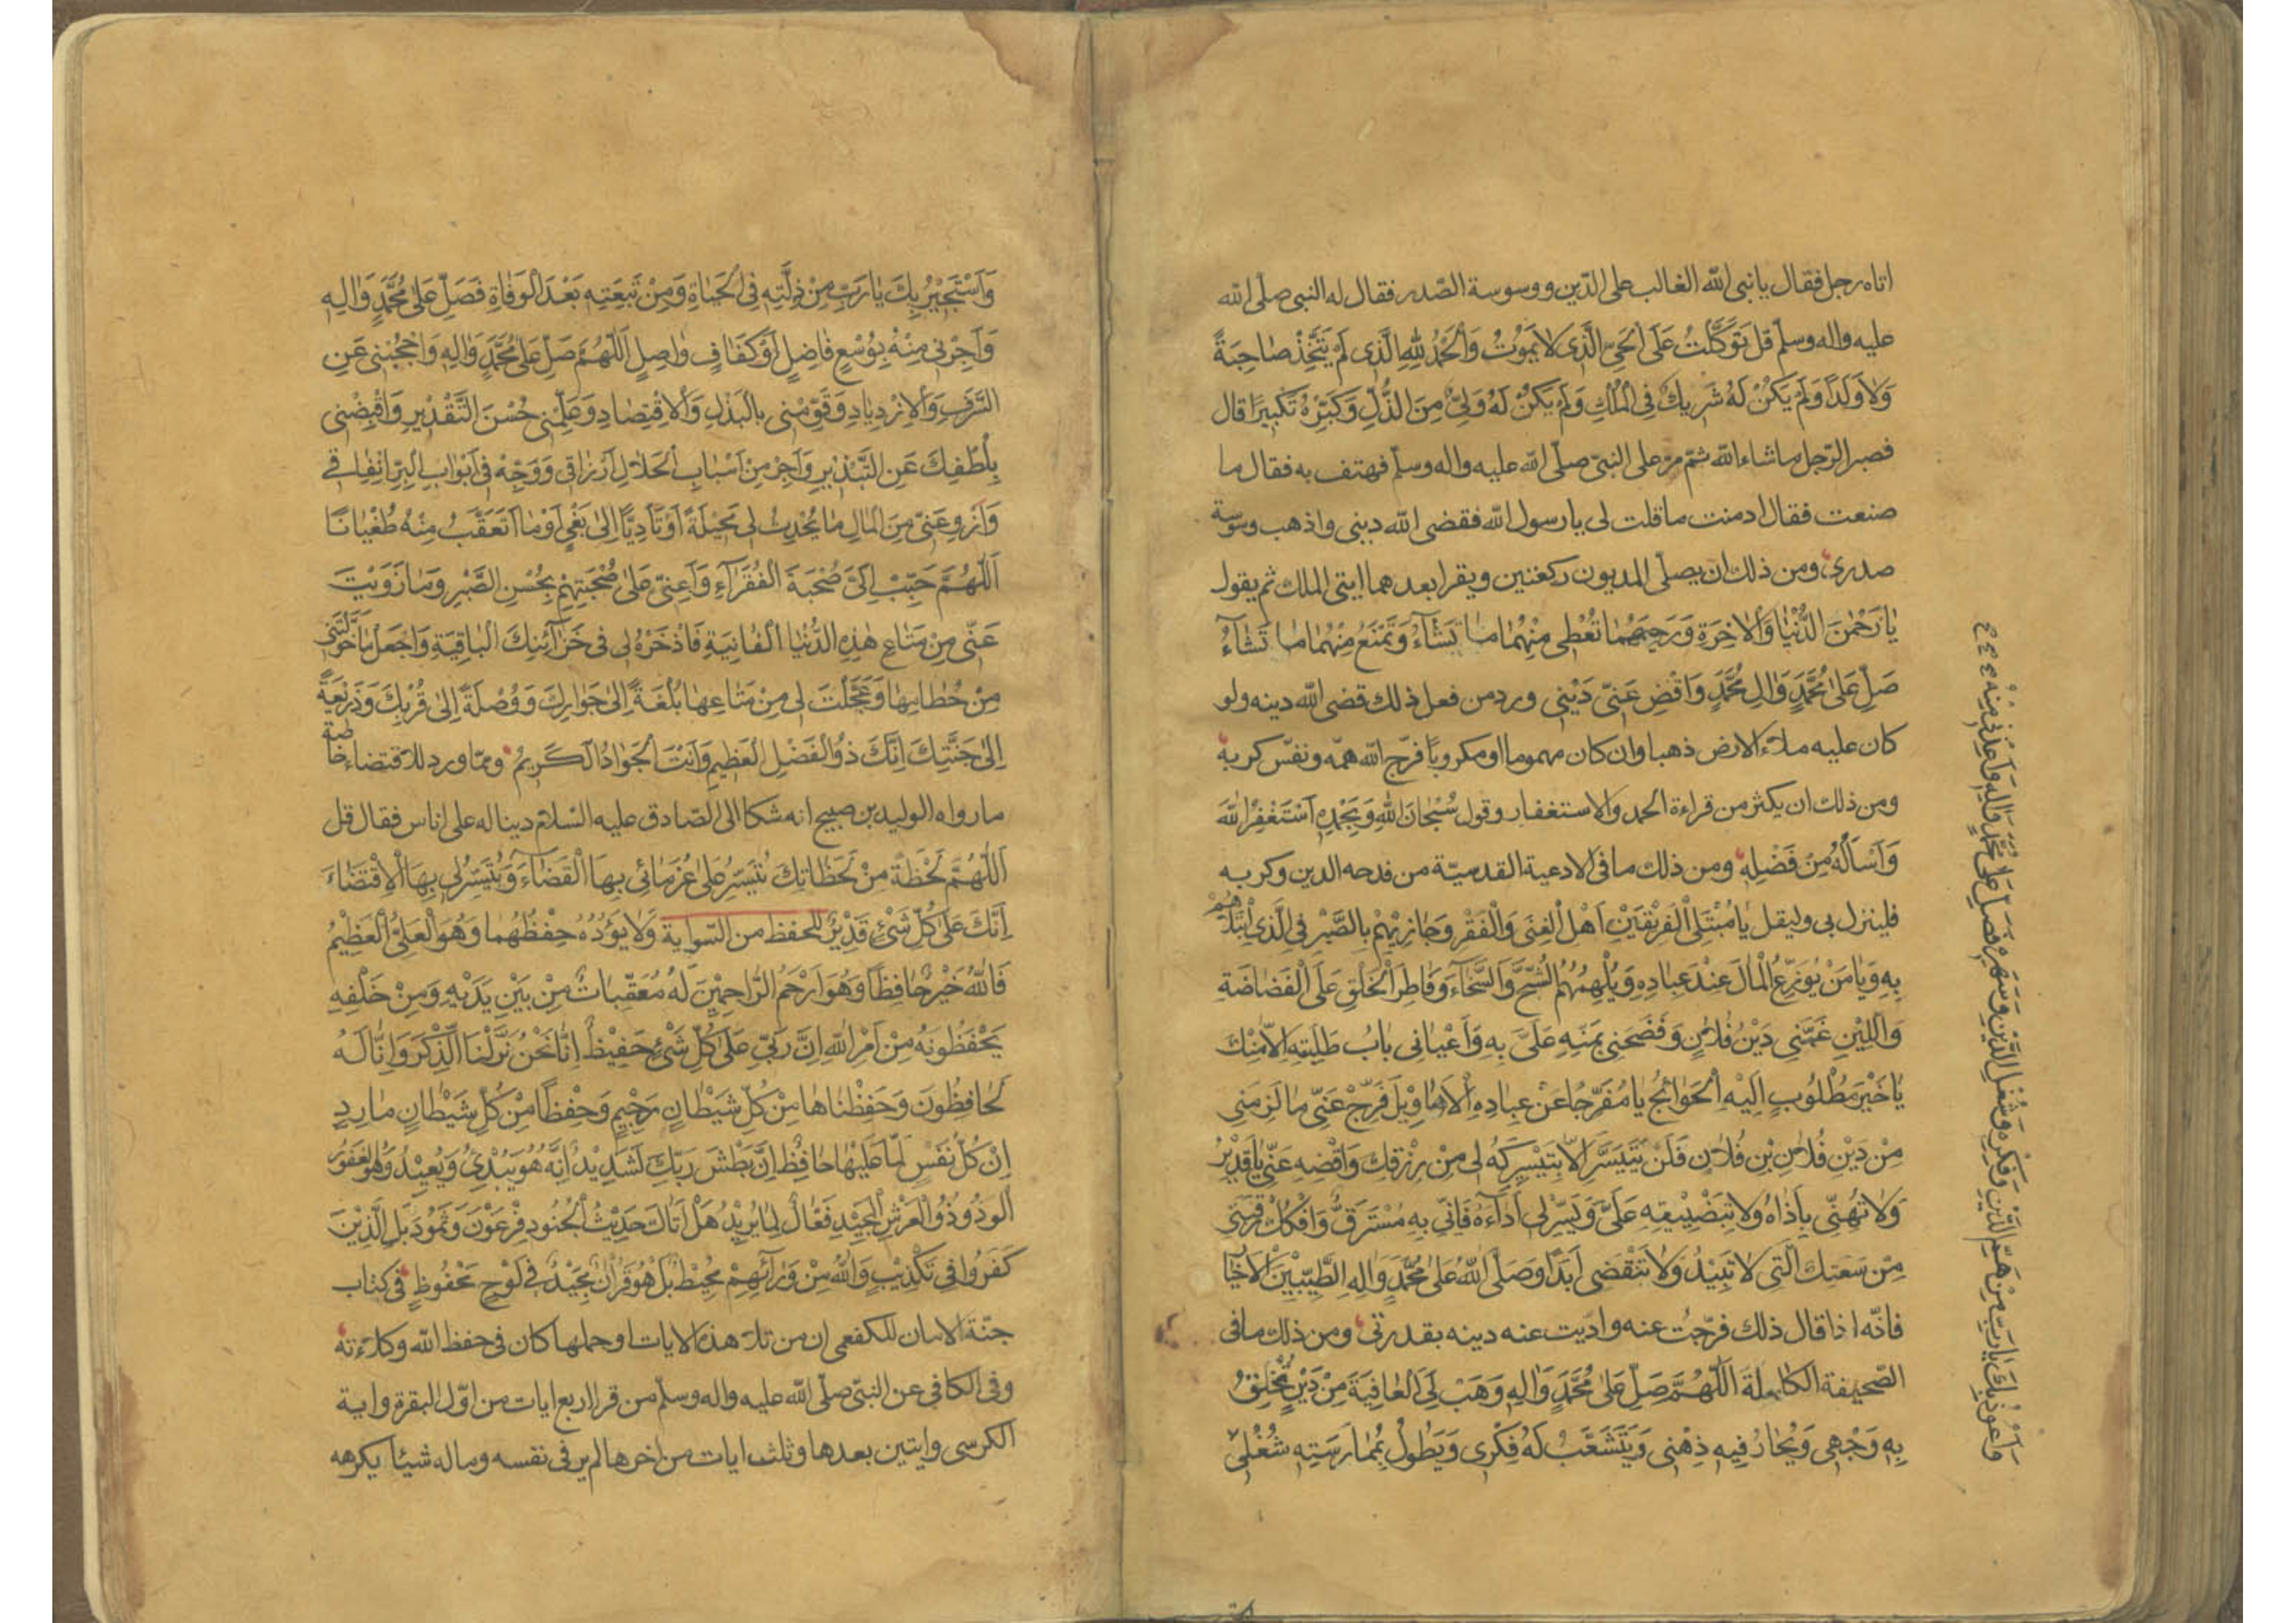 اتاه رجل فقال يا نبى الله الغالب على الدّين ووسوسة الصّدر فقال له النبى صلّى الله
عليه واله وسلّم قل تَوَكَّلْتُ عَلَى الْحَىِّ الَّذى لا يَمُوتُ وَالْحَمْدُ لِلّهِ الَّذى لَمْ يَتَّخِذْ صاحِبَةً
وَلا وَلَدًا وَلَمْ يَكُنْ لَهُ شَريكٌ فِى الْمُلْكِ وَلَمْ يَكُنْ لَهُ وَلِىٌّ مِنَ الذُّلِّ وَكَبِّرْهُ تَكْبيرًا قال
فصبر الرّجل ما شاء الله ثمّ مرّ على النبىّ صلّى الله عليه واله وسلّم فهتف به فقال ما
صنعت فقال ادمنت ما قلت لى يا رسول الله فقضى الله دينى واذهب وسوسة
صدرى ومن ذلك ان يصلّى المديون ركعتين ويقرا بعدهما ايتى الملك ثم يقول
يا رَحْمنَ الدُّنْيا وَالْاخِرَةِ وَرَحيمَهُما تُعْطى مِنْهُما ما تَشآءُ وَتَمْنَعُ مِنْهُما ما تَشآءُ
صَلِّ عَلى مُحَمَّدٍ وَالِ مُحَمَّدٍ وَاقْضِ عَنّى دَيْنى ورد من فعل ذلك قضى الله دينه ولو
كان عليه ملاء الارض ذهبا وان كان مهموما او مكروبًا فرّج الله همّه ونفّس كربه
ومن ذلك ان يكثر من قراءة الحمد والاستغفار وقول سُبْحانَ اللهِ وَبِحَمْدِهِ اَسْتَغْفِرُ اللهَ
وَاَسْاَلُهُ مِنْ فَضْلِهِ ومن ذلك ما فى الادعية القدسيّة من فدحه الدين وكربه
فلينزل بى وليقل يا مُبْتَلِىَ الْفَريقَيْنِ اَهْلِ الْغِنى وَالْفَقْرِ وَجازِيَهُمْ بِالصَّبْرِ فِى الَّذى ابْتَلَيْتَهُمْ
بِهِ وَيا مَنْ يُوَزِّعُ الْمالَ عِنْدَ عِبادِهِ وَيُلْهِمُهُمُ الشُّحَّ وَالسَّخآءَ وَفاطِرَ الْخَلْقِ عَلَى الْفَضاضَةِ
وَاللّينِ غَمَّنى دَيْنُ فُلانٍ وَفَضَحَنى بِمَنِّهِ عَلَىَّ بِهِ وَاَعْيانى بابُ طَلِبَتِهِ اِلّا مِنْكَ
يا خَيْرَ مَطْلُوبٍ اِلَيْهِ الْحَوائِجُ يا مُفَرِّجًا عَنْ عِبادِهِ الْاَهاويلَ فَرِّجْ عَنّى ما لَزِمَنى
مِنْ دَيْنِ فُلانِ بْنِ فُلانٍ فَلَنْ يَتَيَسَّرَ اِلّا بِتَيْسيرِكَهُ لى مِنْ رِزْقِكَ وَاقْضِهِ عَنّى يا قَديرُ
وَلا تُهِنّى بِاَذاهُ وَلا بِتَضْييقِهِ عَلَىَّ وَيَسِّرْ لى اَداءَهُ فَاِنّى بِهِ مُسْتَرَقٌّ وَافْكُكْ رِقّى
مِنْ سَعَتِكَ الَّتى لا تَبيدُ وَلا تَنْقَضى اَبَدًا وَصَلَّى اللهُ عَلى مُحَمَّدٍ وَالِهِ الطَّيِّبينَ الْاَخْيار
فانّه اذا قال ذلك فرّجت عنه وادّيت عنه دينه بقدرتى ومن ذلك ما فى
الصّحيفة الكاملة اَللّهُمَّ صَلِّ عَلى مُحَمَّدٍ وَالِهِ وَهَبْ لِىَ الْعافِيَةَ مِنْ دَيْنٍ تُخْلِقُ
بِهِ وَجْهى وَيَحارُ فيهِ ذِهْنى وَيَتَشَعَّبُ لَهُ فِكْرى وَيَطُولُ بِمُمارَسَتِهِ شُغْلى
وَاَعُوذُ بِكَ يا رَبِّ مِنْ هَمِّ الدَّيْنِ وَفِكْرِهِ وَشُغْلِ الدَّيْنِ وَسَهَرِهِ فَصَلِّ عَلى مُحَمَّدٍ وَالِهِ وَاَعِذْنى مِنْهُ
وَاَسْتَجيرُ بِكَ يا رَبِّ مِنْ ذِلَّتِهِ فِى الْحَياةِ وَمِنْ تَبِعَتِهِ بَعْدَ الْوَفاةِ فَصَلِّ عَلى مُحَمَّدٍ وَالِهِ
وَاَجِرْنى مِنْهُ بِوُسْعٍ فاضِلٍ اَوْ كَفافٍ واصِلٍ اَللّهُمَّ صَلِّ عَلى مُحَمَّدٍ وَالِهِ وَاحْجُبْنى عَنِ
السَّرَفِ وَالْاِزْدِيادِ وَقَوِّمْنى بِالْبَذْلِ وَالْاِقْتِصادِ وَعَلِّمْنى حُسْنَ التَّقْديرِ وَاقْبِضْنى
بِلُطْفِكَ عَنِ التَّبْذيرِ وَاَجْرِ مِنْ اَسْبابِ الْحَلالِ اَرْزاقى وَوَجِّهْ فى اَبْوابِ الْبِرِّ اِنْفاقى
وَازْوِ عَنّى مِنَ الْمالِ ما يُحْدِثُ لى مَخيلَةً اَوْ تَاَدِّيًا اِلى بَغْىٍ اَوْ ما اَتَعَقَّبُ مِنْهُ طُغْيانًا
اَللّهُمَّ حَبِّبْ اِلَىَّ صُحْبَةَ الْفُقَرآءِ وَاَعِنّى عَلى صُحْبَتِهِمْ بِحُسْنِ الصَّبْرِ وَما زَوَيْتَ
عَنّى مِنْ مَتاعِ هذِهِ الدُّنْيَا الْفانِيَةِ فَاذْخَرْهُ لى فى خَزآئِنِكَ الْباقِيَةِ وَاجْعَلْ ما خَوَّلْتَنى
مِنْ حُطامِها وَعَجَّلْتَ لى مِنْ مَتاعِها بُلْغَةً اِلى جَوارِكَ وَوُصْلَةً اِلى قُرْبِكَ وَذَريعَةً
اِلى جَنَّتِكَ اِنَّكَ ذُو الْفَضْلِ الْعَظيمِ وَاَنْتَ الْجَوادُ الْكَريمُ وممّا ورد للاقتضاء خاصة
ما رواه الوليد بن صبيح انه شكا الى الصّادق عليه السّلام دينا له على اناس فقال قل
اَللّهُمَّ لَحْظَةً مِنْ لَحَظاتِكَ تُيَسِّرُ عَلى غُرَمائى بِهَا الْقَضآءَ وَتُيَسِّرُ لى بِهَا الْاِقْتِضآءَ
اِنَّكَ عَلى كُلِّ شَىْءٍ قَديرٌ للحفظ من السّواية وَلا يَؤُدُهُ حِفْظُهُما وَهُوَ الْعَلِىُّ الْعَظيمُ
فَاللهُ خَيْرٌ حافِظًا وَهُوَ اَرْحَمُ الرّاحِمينَ لَهُ مُعَقِّباتٌ مِنْ بَيْنِ يَدَيْهِ وَمِنْ خَلْفِهِ
يَحْفَظُونَهُ مِنْ اَمْرِ اللهِ اِنَّ رَبّى عَلى كُلِّ شَىْءٍ حَفيظٌ اِنّا نَحْنُ نَزَّلْنَا الذِّكْرَ وَاِنّا لَهُ
لَحافِظُونَ وَحَفِظْناها مِنْ كُلِّ شَيْطانٍ رَجيمٍ وَحِفْظًا مِنْ كُلِّ شَيْطانٍ مارِدٍ
اِنْ كُلُّ نَفْسٍ لَمّا عَلَيْها حافِظٌ اِنَّ بَطْشَ رَبِّكَ لَشَديدٌ اِنَّهُ هُوَ يُبْدِئُ وَيُعيدُ وَهُوَ الْغَفُورُ
الْوَدُودُ ذُو الْعَرْشِ الْمَجيدِ فَعّالٌ لِما يُريدُ هَلْ اَتاكَ حَديثُ الْجُنُودِ فِرْعَوْنَ وَثَمُودَ بَلِ الَّذينَ
كَفَرُوا فى تَكْذيبٍ وَاللهُ مِنْ وَرآئِهِمْ مُحيطٌ بَلْ هُوَ قُرْانٌ مَجيدٌ فى لَوْحٍ مَحْفُوظٍ فى كتاب
جنّة الامان للكفعمى ان من تلا هذه الايات او حملها كان فى حفظ الله وكلاءته
وفى الكافى عن النبىّ صلّى الله عليه واله وسلّم من قرا اربع ايات من اوّل البقرة واية
الكرسى وايتين بعدها وثلث ايات من اخرها لم ير فى نفسه وماله شيئا يكرهه